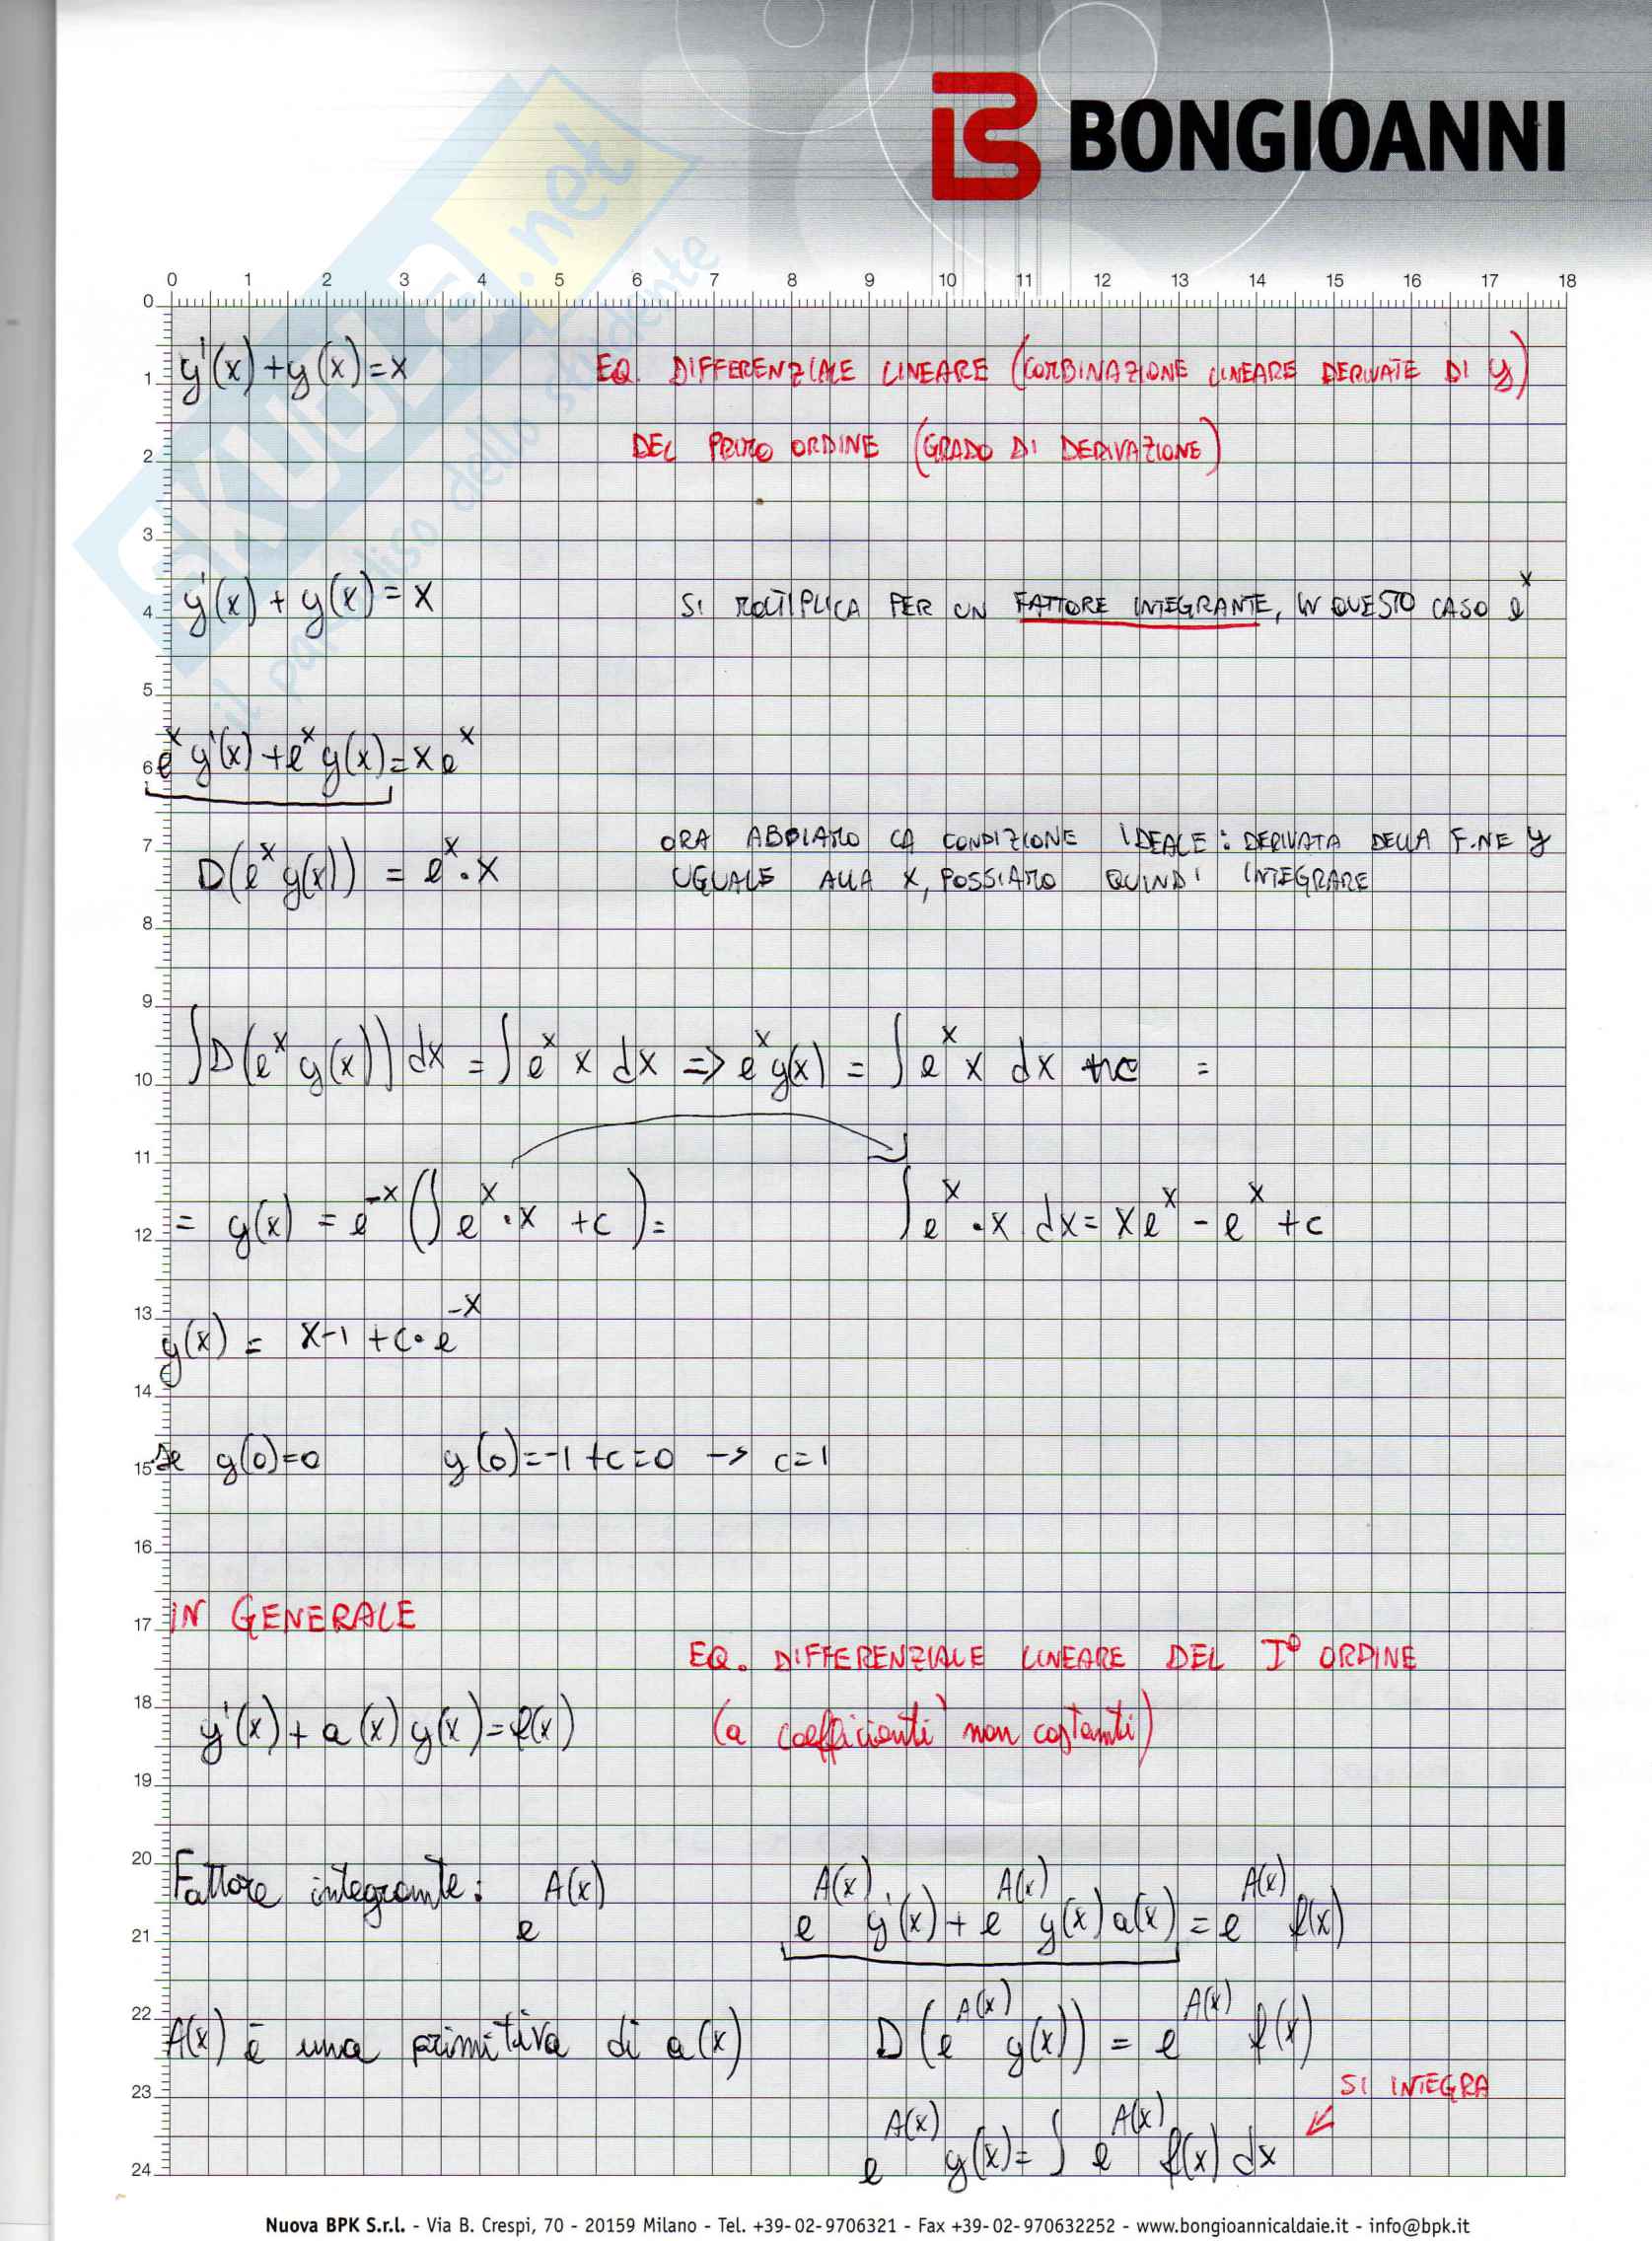 BONGIOANNI
SKUOLA.net
il paradiso dello studente
0 1 2 3 4 5 6 7 8 9 10 11 12 13 14 15 16 17 18
0
1
2
3
4
5
6
7
8
9
10
11
12
13
14
15
16
17
18
19
20
21
22
23
24
y'(x)+y(x)=x EQ. DIFFERENZIALE LINEARE (COMBINAZIONE LINEARE DERIVATE DI y)
DEL PRIMO ORDINE (GRADO DI DERIVAZIONE)
y'(x)+y(x)=x SI MOLTIPLICA PER UN FATTORE INTEGRANTE, IN QUESTO CASO e^x
e^x y'(x)+e^x y(x)=x e^x
D(e^x y(x)) = e^x·x ORA ABBIAMO LA CONDIZIONE IDEALE: DERIVATA DELLA F.NE y
UGUALE ALLA x, POSSIAMO QUINDI INTEGRARE
∫D(e^x y(x))dx = ∫e^x x dx => e^x y(x) = ∫e^x x dx +c =
= y(x) = e^-x(∫e^x·x +c)= ∫e^x·x dx = xe^x - e^x +c
y(x) = x-1 +c·e^-x
se y(0)=0 y(0)=-1+c=0 → c=1
IN GENERALE
EQ. DIFFERENZIALE LINEARE DEL I° ORDINE
y'(x)+a(x)y(x)=f(x) (a coefficienti non costanti)
Fattore integrante: e^A(x) e^A(x) y'(x)+e^A(x) y(x)a(x)=e^A(x) f(x)
A(x) è una primitiva di a(x) D(e^A(x) y(x)) = e^A(x) f(x)
SI INTEGRA
e^A(x) y(x)=∫e^A(x) f(x)dx
Nuova BPK S.r.l. - Via B. Crespi, 70 - 20159 Milano - Tel. +39-02-9706321 - Fax +39-02-970632252 - www.bongioannicaldaie.it - info@bpk.it